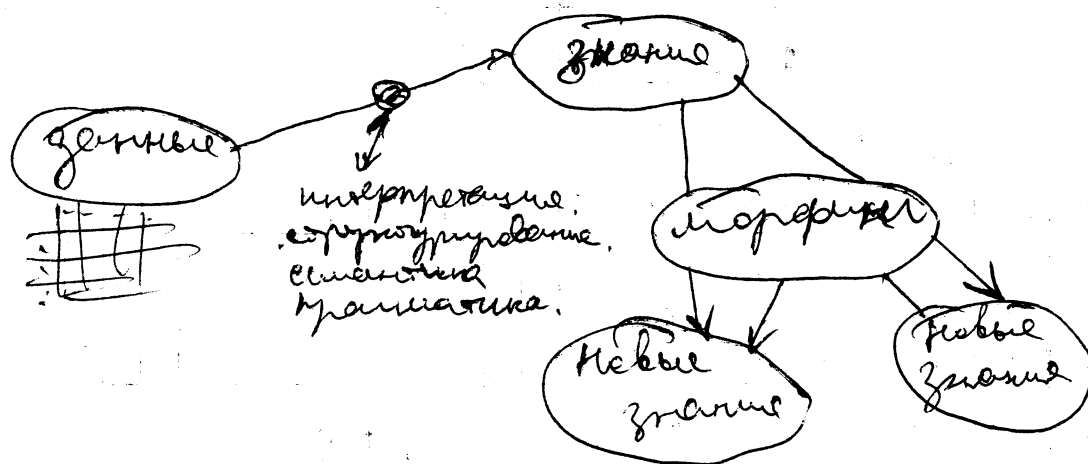 знания
данные
интерпретация.
структурирование.
семантика
прагматика.
морфинг
Новые
знания
Новые
знания